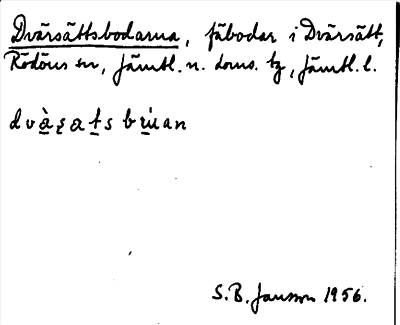 Dvärsättsbodarna, fäbodar i Dvärsätt,
Rödöns sn, Jämtl. n. doms. tg, Jämtl. l.
S. B. Jansson 1956.